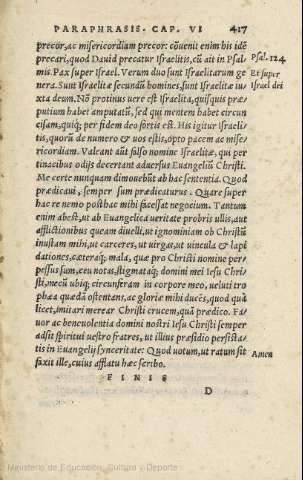 PARAPHRASIS. CAP. VI 417
precor, ac misericordiam precor: cōuenit enim his idē
precari, quod Dauid precatur Israelitis, cū ait in Psal
mis. Pax super Israel. Verum duo sunt Israelitarum ge
nera. Sunt Israelitæ secundū homines, sunt Israelitæ iu
xta deum. Nō protinus uere est Israelita, quisquis præ
putium habet amputatū, sed qui mentem habet circun
cisam, quiq; per fidem deo fortis est. His igitur Israeli
tis, quorū de numero & uos estis, opto pacem ac mise
ricordiam. Valeant aūt falso nomine Israelitæ, qui per
tinacibus odijs decertant aduersus Euangeliū Christi.
Me certe nunquam dimouebūt ab hac sententia. Quod
prædicaui, semper sum prædicaturus. Quare super
hac re nemo posthac mihi facessat negocium. Tantum
enim abest, ut ab Euangelica ueritate probris ullis, aut
afflictionibus queam diuelli, ut ignominiam ob Christū
inustam mihi, ut carceres, ut uirgas, ut uincula & lapi
dationes, cæteraq; mala, quæ pro Christi nomine per
pessus sum, ceu notas, stigmataq; domini mei Iesu Chri
sti, mecū ubiq; circunferam in corpore meo, ueluti tro
phæa quædā ostentans, ac gloriæ mihi ducēs, quod quā
licet, imitari merear Christi crucem, quā prædico. Fa
uor ac beneuolentia domini nostri Iesu Christi semper
adsit spiritui uestro fratres, ut illius præsidio persista
tis in Euangelij synceritate: Quod uotum, ut ratum sit
faxit ille, cuius afflatu hæc scribo.
FINIS
D
Psal. 124
Et super
Israel dei
Amen
Ministerio de Educación, Cultura y Deporte